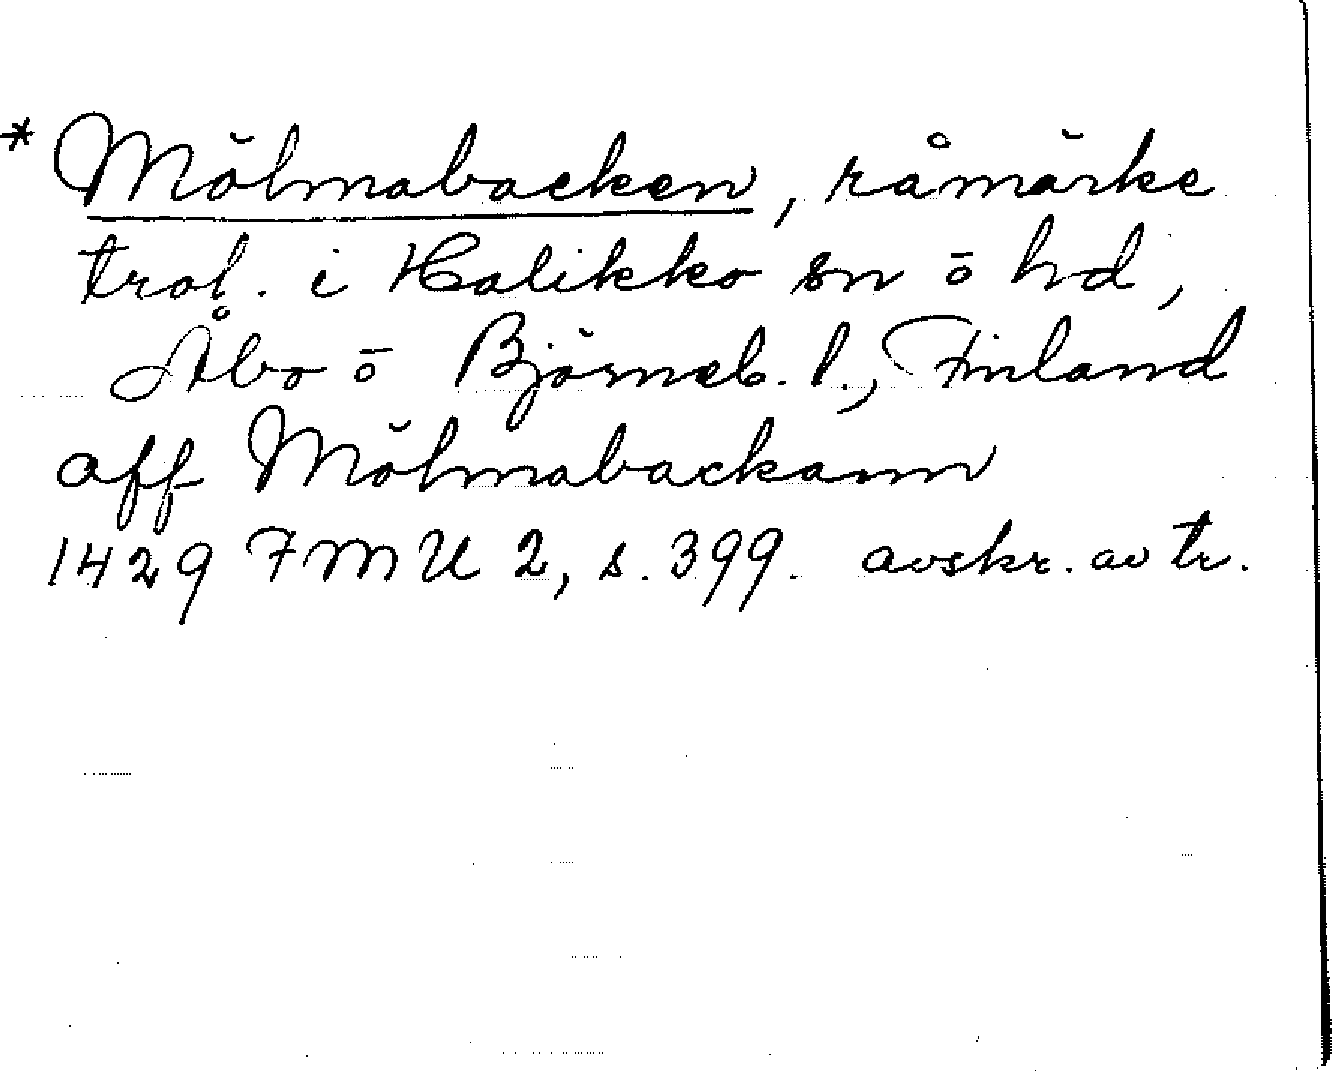 * Mölmabacken, råmärke
trol. i Halikko sn ō hd,
Åbo ō Björneb. l., Finland
aff Mölmabackann
1429 FMU 2, s. 399. avskr. av tr.